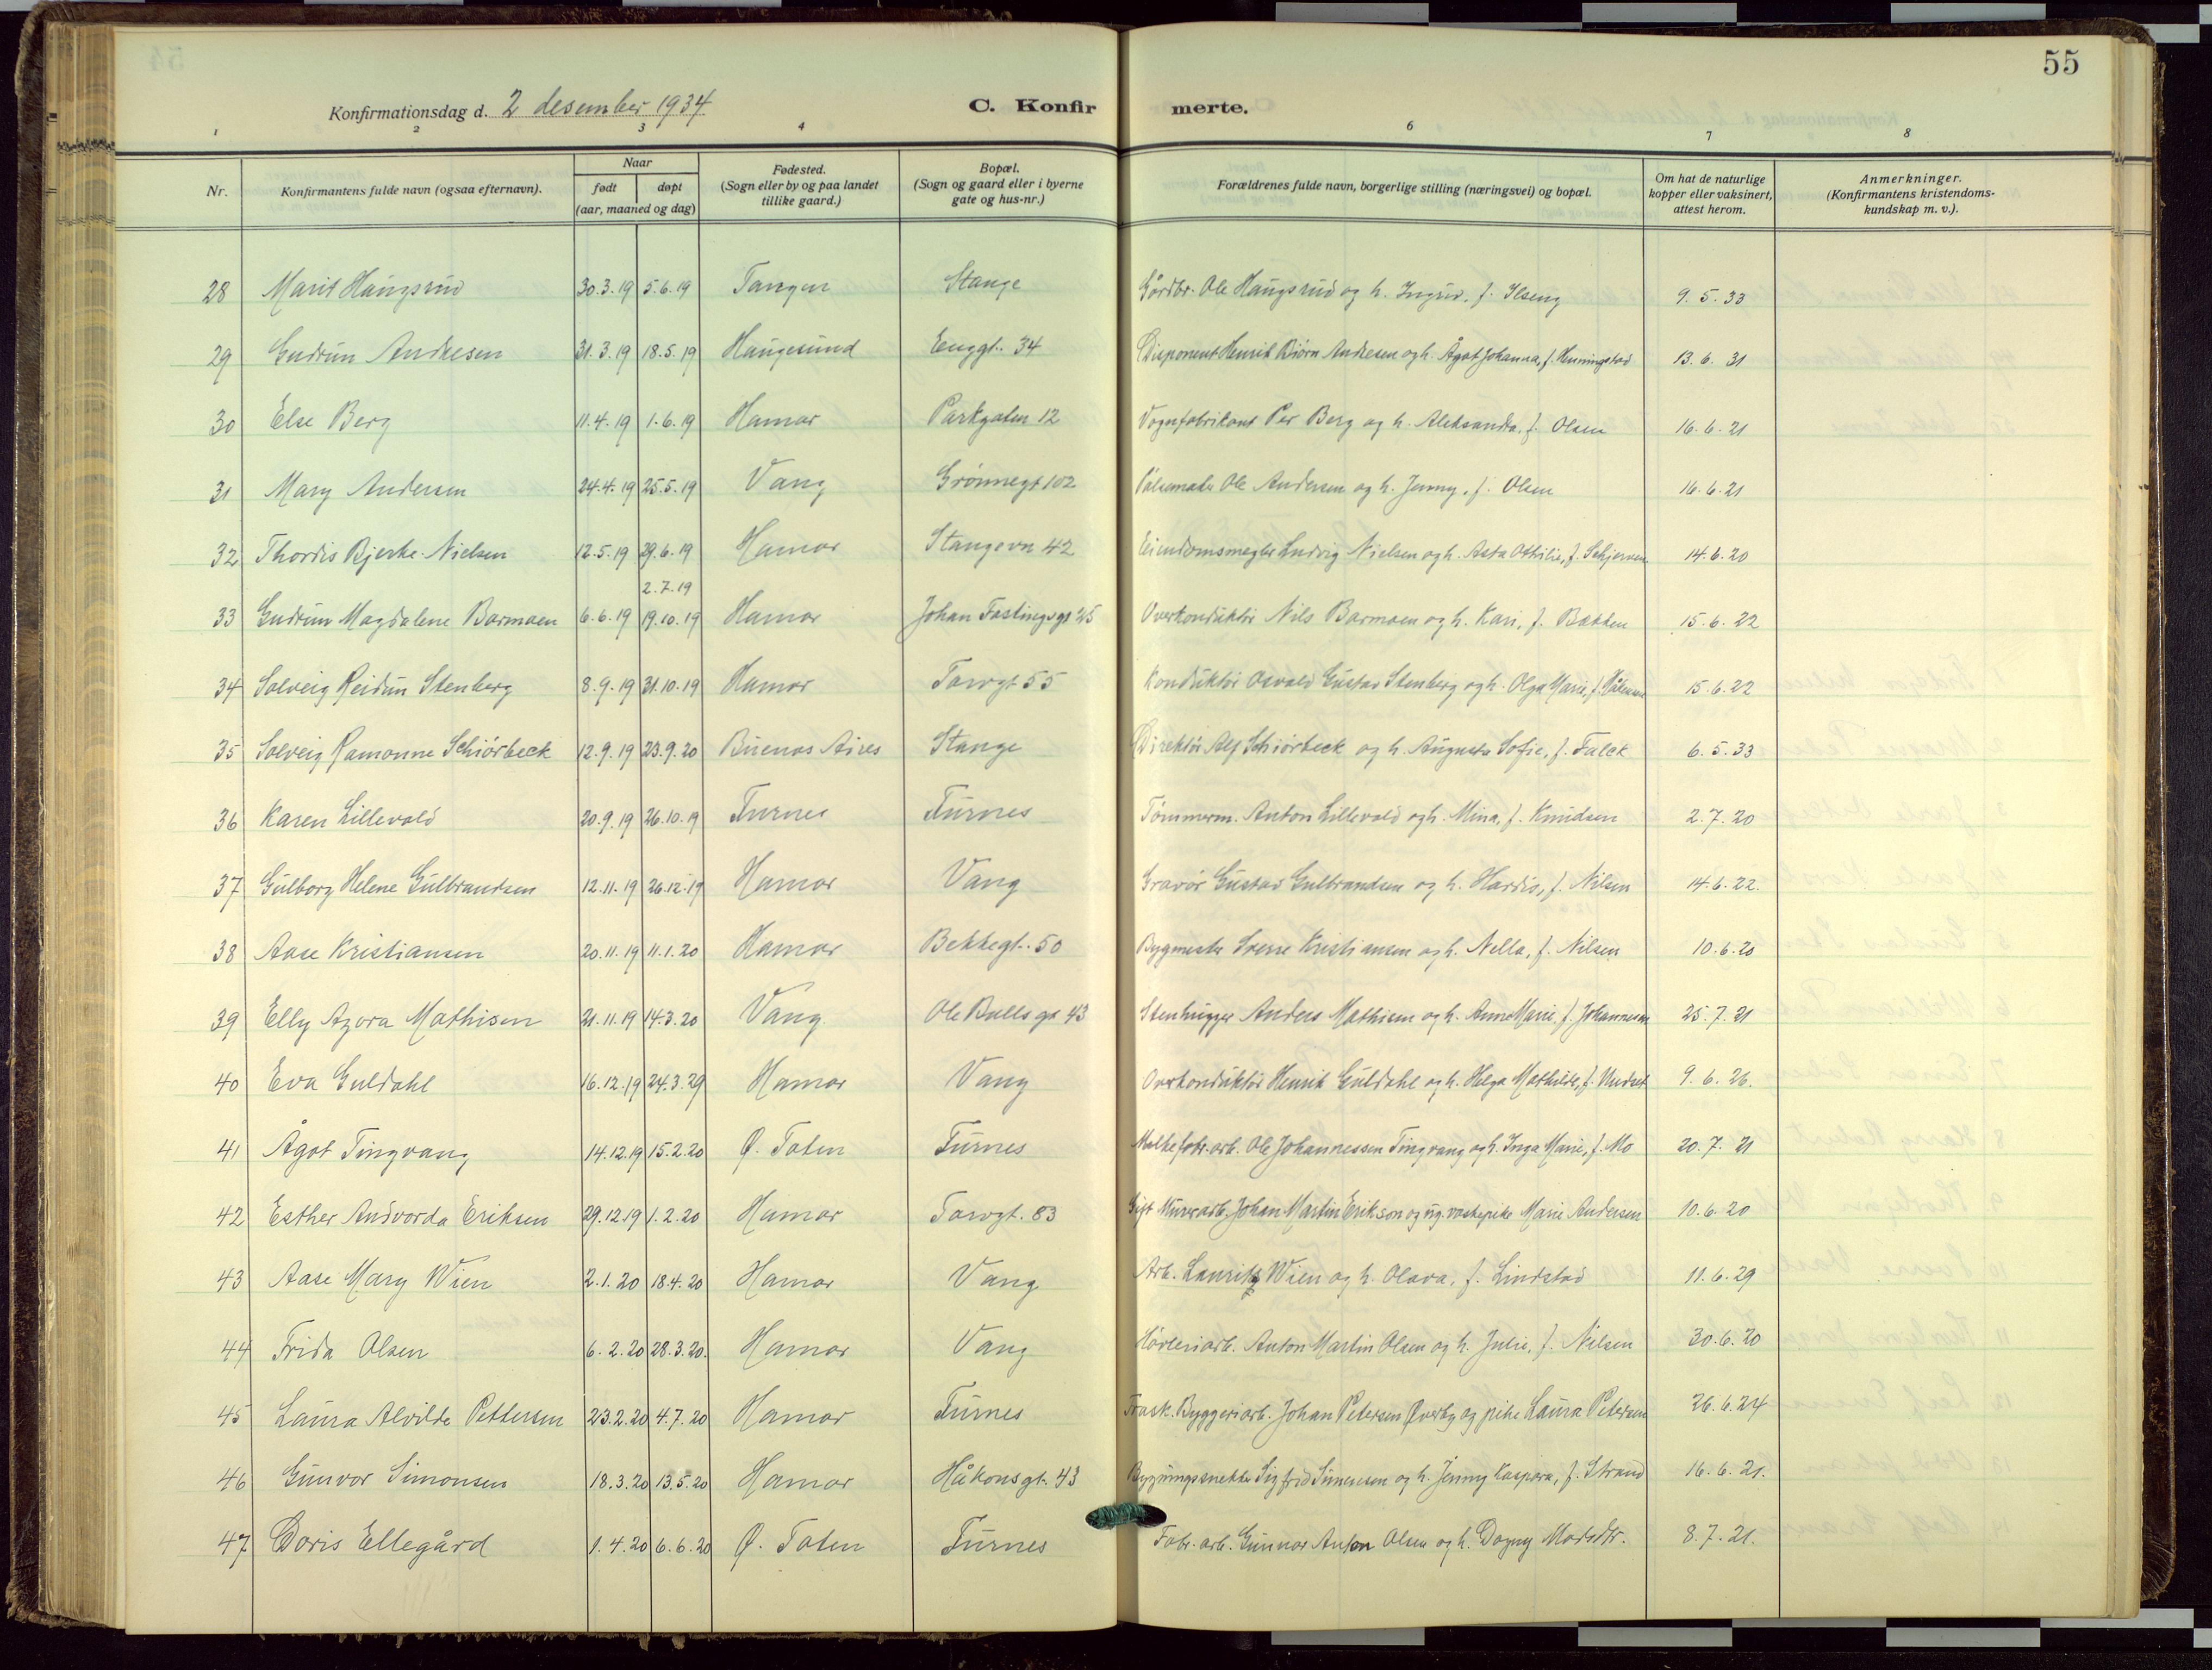 55
Konfirmationsdag d. 2 desember 1934 C. Konfirmerte.
1 2 3 4 6 7 8
Nr. Konfirmantens fulde navn (ogsaa efternavn). Naar født døpt (aar, maaned og dag) Fødested. (Sogn eller by og paa landet tillike gaard.) Bopæl. (Sogn og gaard eller i byerne gate og hus-nr.) Forældrenes fulde navn, borgerlige stilling (næringsvei) og bopæl. Om hat de naturlige kopper eller vaksinert, attest herom. Anmerkninger. (Konfirmantens kristendoms-kundskap m. v.).
28 Marit Haugsrud 30.3.19 5.6.19 Tangen Stange Gårdbr. Ole Haugsrud og h. Ingrid, f. Ilseng 9.5.33
29 Gudrun Andresen 31.3.19 18.5.19 Haugesund Enggt. 34 Disponent Henrik Biörn Andresen og h. Ågot Johanna, f. Henningstad 13.6.31
30 Else Berg 11.4.19 1.6.19 Hamar Parkgaten 12 Vognfabrikant Per Berg og h. Aleksandra, f. Olsen 16.6.21
31 Mary Andersen 24.4.19 25.5.19 Vang Grønnegt 102 Pølsemaker Ole Andersen og h. Jenny, f. Olsen 16.6.21
32 Thordis Bjerke-Nielsen 12.5.19 29.6.19 Hamar Stangevn 42 Eiendomsmegler Ludvig Nielsen og h. Asta Othilie, f. Schjerven 14.6.20
2.7.19
33 Gudrun Magdalene Barmoen 6.6.19 19.10.19 Hamar Johan Fastings gt 25 Overkonduktör Nils Barmoen og h. Kari, f. Bakken 15.6.22
34 Solveig Reidun Stenberg 8.9.19 31.10.19 Hamar Torvgt 55 Konduktör Osvald Gustav Stenberg og h. Olga Marie, f. Håkensen 15.6.22
35 Solveig Ramonne Schiörbeck 12.9.19 23.9.20 Buenos Aires Stange Direktör Alf Schiörbeck og h. Augusta Sofie, f. Falck 6.5.33
36 Karen Lillevold 20.9.19 26.10.19 Furnes Furnes Tömmerm. Anton Lillevold og h. Mina, f. Knudsen 2.7.20
37 Gulborg Helene Gulbrandsen 12.11.19 26.12.19 Hamar Vang Gravör Gustav Gulbrandsen og h. Hardis, f. Nilsen 14.6.22.
38 Aase Kristiansen 20.11.19 11.1.20 Hamar Bekkegt. 50 Bygmester Sverre Kristiansen og h. Nella, f. Nilsen 10.6.20
39 Elly Azora Mathisen 21.11.19 14.3.20 Vang Ole Bulls gt 43 Stenhugger Anders Mathisen og h. Anne Marie, f. Johannesen 25.7.21
40 Eva Guldahl 16.12.19 24.3.29 Hamar Vang Overkonduktör Henrik Guldahl og h. Helga Mathilde, f. Undset 9.6.26.
41 Ågot Tingvang 14.12.19 15.2.20 Ø. Toten Furnes Melkefabr. arb. Ole Johannessen Tingvang og h. Inga Marie, f. Mo 20.7.21
42 Esther Andvorda Eriksen 29.12.19 1.2.20 Hamar Torvgt. 83 Gift Murerarb. Johan Martin Erikson og ug. vaskepike Marie Andersen 10.6.20
43 Aase Mary Wien 2.1.20 18.4.20 Hamar Vang Arb. Lauritz Wien og h. Olava, f. Lindstad 11.6.29
44 Frida Olsen 6.2.20 28.3.20. Hamar Vang Hövleriarb. Anton Martin Olsen og h. Julie, f. Nilsen 30.6.20
45 Laura Alvilde Pettersen 23.2.20 4.7.20 Hamar Furnes Frask. Byggeriarb. Johan Petersen Överby og pike Laura Petersen 26.6.24
46 Gunvor Simonsen 18.3.20 13.5.20 Hamar Håkonsgt. 43 Bygningssnekker Sigfrid Simensen og h. Jenny Kaspara, f. Strand 16.6.21.
47 Doris Ellegård 1.4.20 6.6.20 Ø. Toten Furnes Fabr. arb. Gunnar Anton Olsen og h. Dagny Madsdtr. 8.7.21.